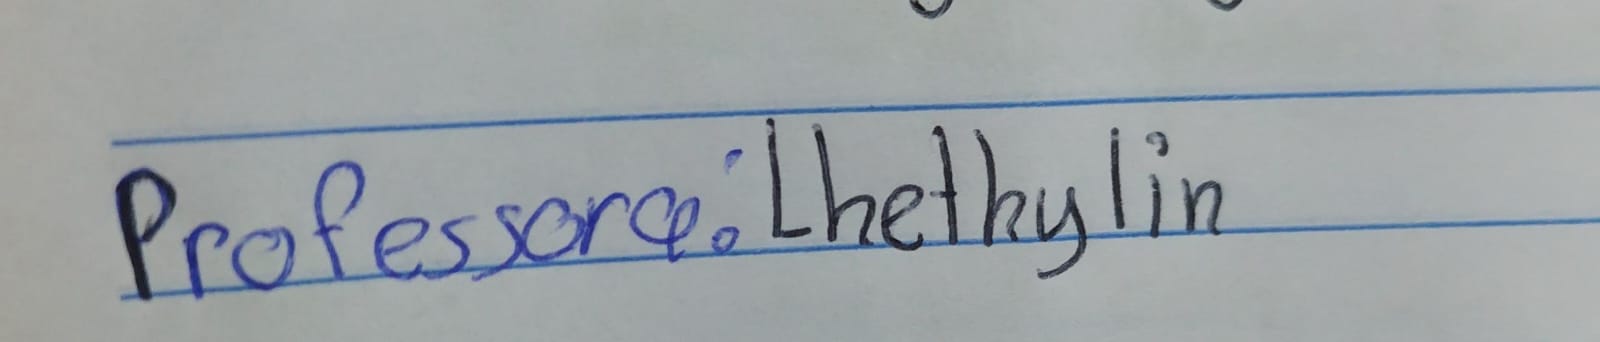 Professora: Lhethylin